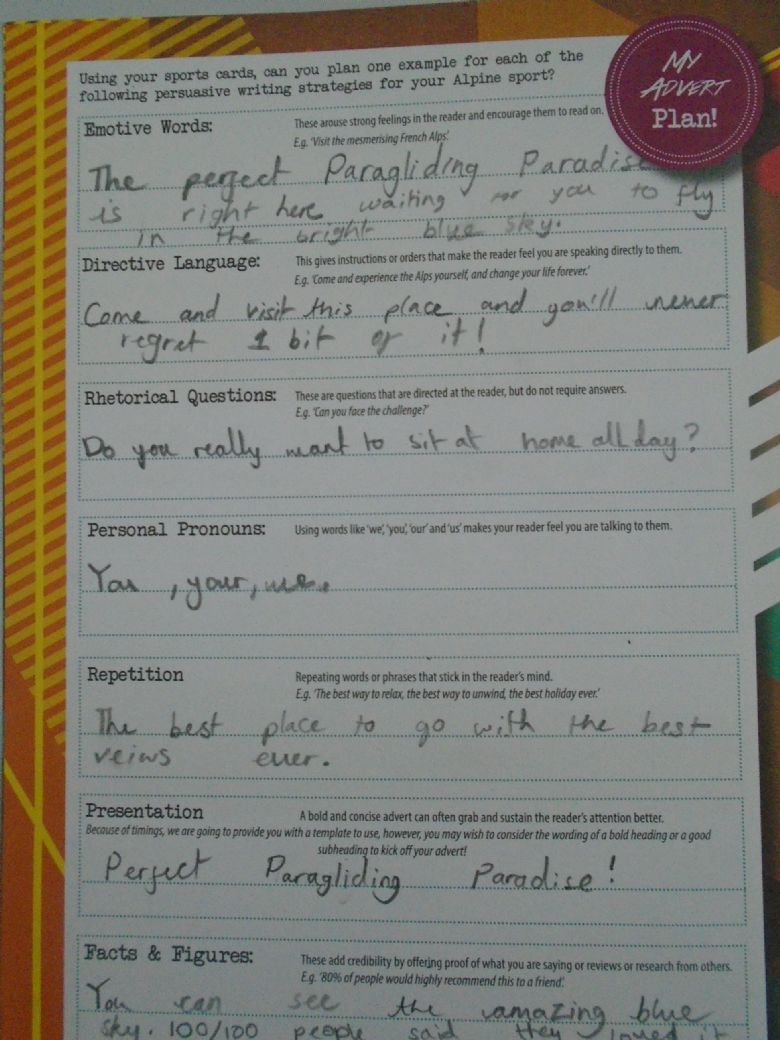 Using your sports cards, can you plan one example for each of the
following persuasive writing strategies for your Alpine sport?
My
Advert
Plan!
Emotive Words:
These arouse strong feelings in the reader and encourage them to read on.
E.g. 'Visit the mesmerising French Alps.'
The perfect Paragliding Paradise
is right here waiting for you to fly
in the bright blue sky.
Directive Language:
This gives instructions or orders that make the reader feel you are speaking directly to them.
E.g. 'Come and experience the Alps yourself, and change your life forever.'
Come and visit this place and you'll never
regret 1 bit of it!
Rhetorical Questions:
These are questions that are directed at the reader, but do not require answers.
E.g. 'Can you face the challenge?'
Do you really want to sit at home all day?
Personal Pronouns:
Using words like 'we', 'you', 'our' and 'us' makes your reader feel you are talking to them.
You , your, we.
Repetition
Repeating words or phrases that stick in the reader's mind.
E.g. 'The best way to relax, the best way to unwind, the best holiday ever.'
The best place to go with the best
veiws ever.
Presentation
A bold and concise advert can often grab and sustain the reader's attention better.
Because of timings, we are going to provide you with a template to use, however, you may wish to consider the wording of a bold heading or a good
subheading to kick off your advert!
Perfect Paragliding Paradise!
Facts & Figures:
These add credibility by offering proof of what you are saying or reviews or research from others.
E.g. '80% of people would highly recommend this to a friend'.
You can see the amazing blue
sky. 100/100 people said they loved it